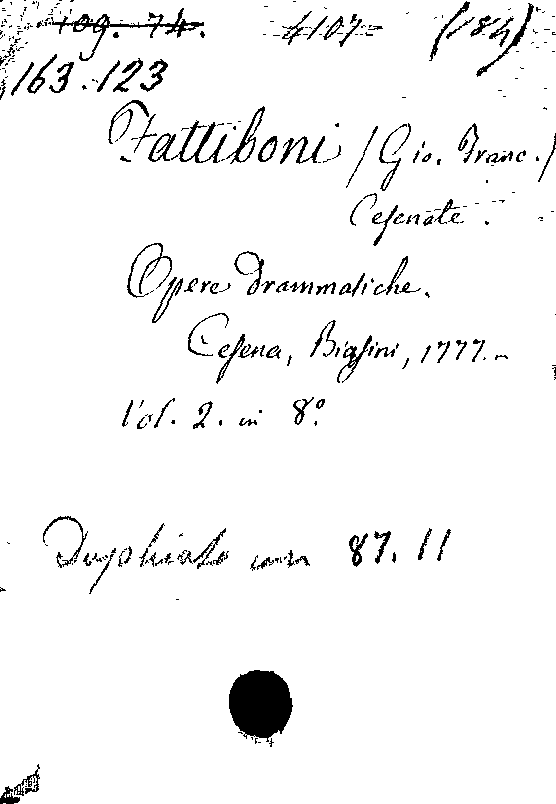 109. 74. 4107 (184)
163.123
Fattiboni (Gio. Franc.)
Cesenate.
Opere Drammatiche.
Cesena, Biasini, 1777.-
Vol. 2. in 8º.
Duplicato con 87. 11